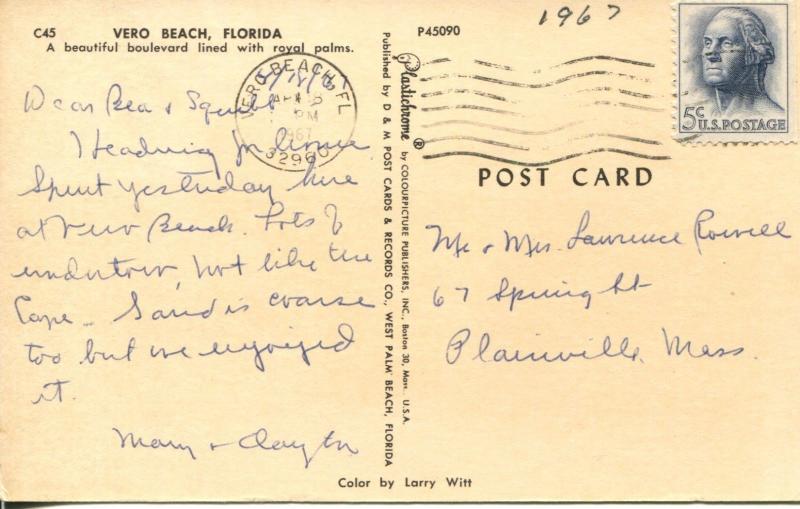 C45 VERO BEACH, FLORIDA
A beautiful boulevard lined with royal palms.
Dear Bea & Squill
Heading for home
Spent yesterday here
at Vero Beach. Lots of
undertow, not like the
Cape - Sand is coarse
too but we enjoyed
it.
Mary & Clayton
VERO BEACH, FL
PM
1967
32960
Published by D & M POST CARDS & RECORDS CO., WEST PALM BEACH, FLORIDA
Plastichrome ® by COLOURPICTURE PUBLISHERS, INC., Boston 30, Mass. U.S.A.
P45090
1967
5c U.S. POSTAGE
POST CARD
Mr & Mrs. Lawrence Rowell
67 Spring St
Plainville, Mass.
Color by Larry Witt